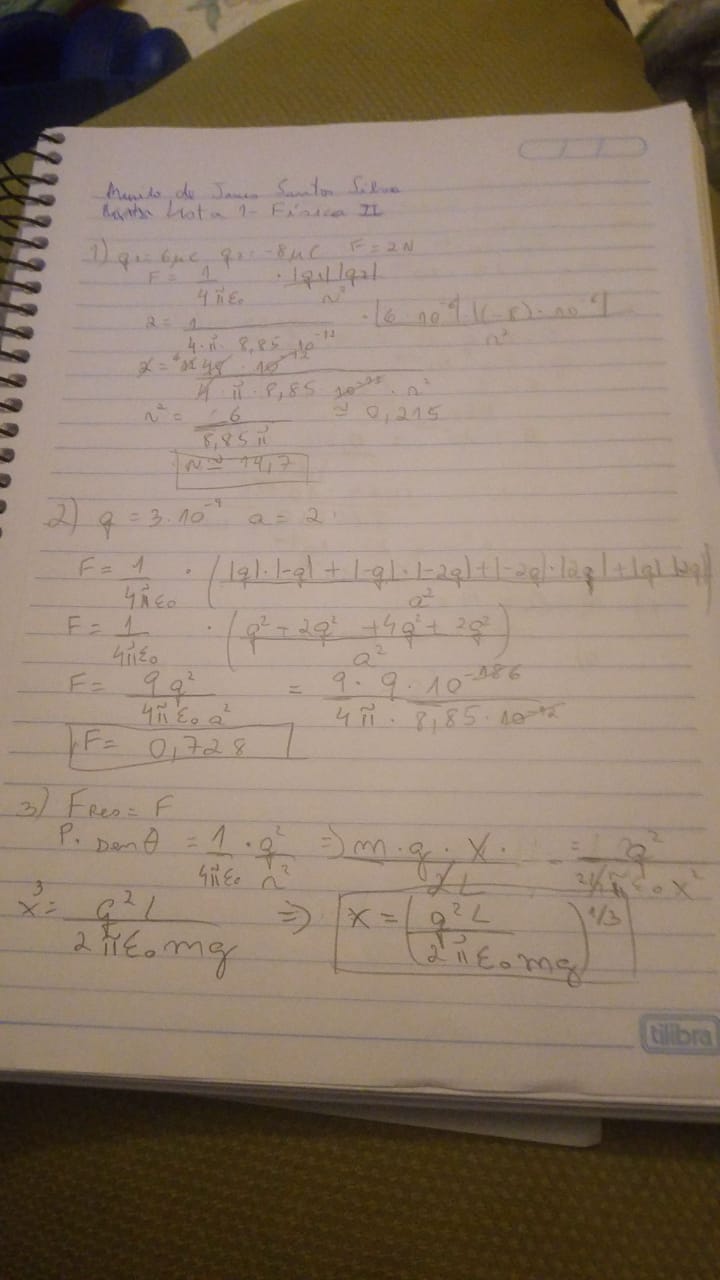 de Santos Silva
Lista 1 - Física II
1) q₁ = 6μC q₂ = -8μC F = 2N
F = 1/4πε₀ · |q₁||q₂|/r²
2 = 1/4·π·8,85·10⁻¹² · |6·10⁻⁶|·|(-8)·10⁻⁶|/r²
2 = 48·10⁻¹²/4·π·8,85·10⁻¹²·r²
r² = 6/8,85π ≅ 0,215
r ≅ 14,7
2) q = 3·10⁻⁹ a = 2
F = 1/4πε₀ · (|q|·|-q| + |-q|·|-2q| + |-2q|·|2q| + |q|·|2q|/a²)
F = 1/4πε₀ · (q² + 2q² + 4q² + 2q²/a²)
F = 9q²/4πε₀a² = 9·9·10/4π·8,85·10⁻¹²
F = 0,728
3) Fres = F
P. senθ = 1/4πε₀ · q²/r² => m·g·x/2L = q²/4πε₀x²
x³ = q²L/2πε₀mg => x = (q²L/2πε₀mg)^1/3
tilibra